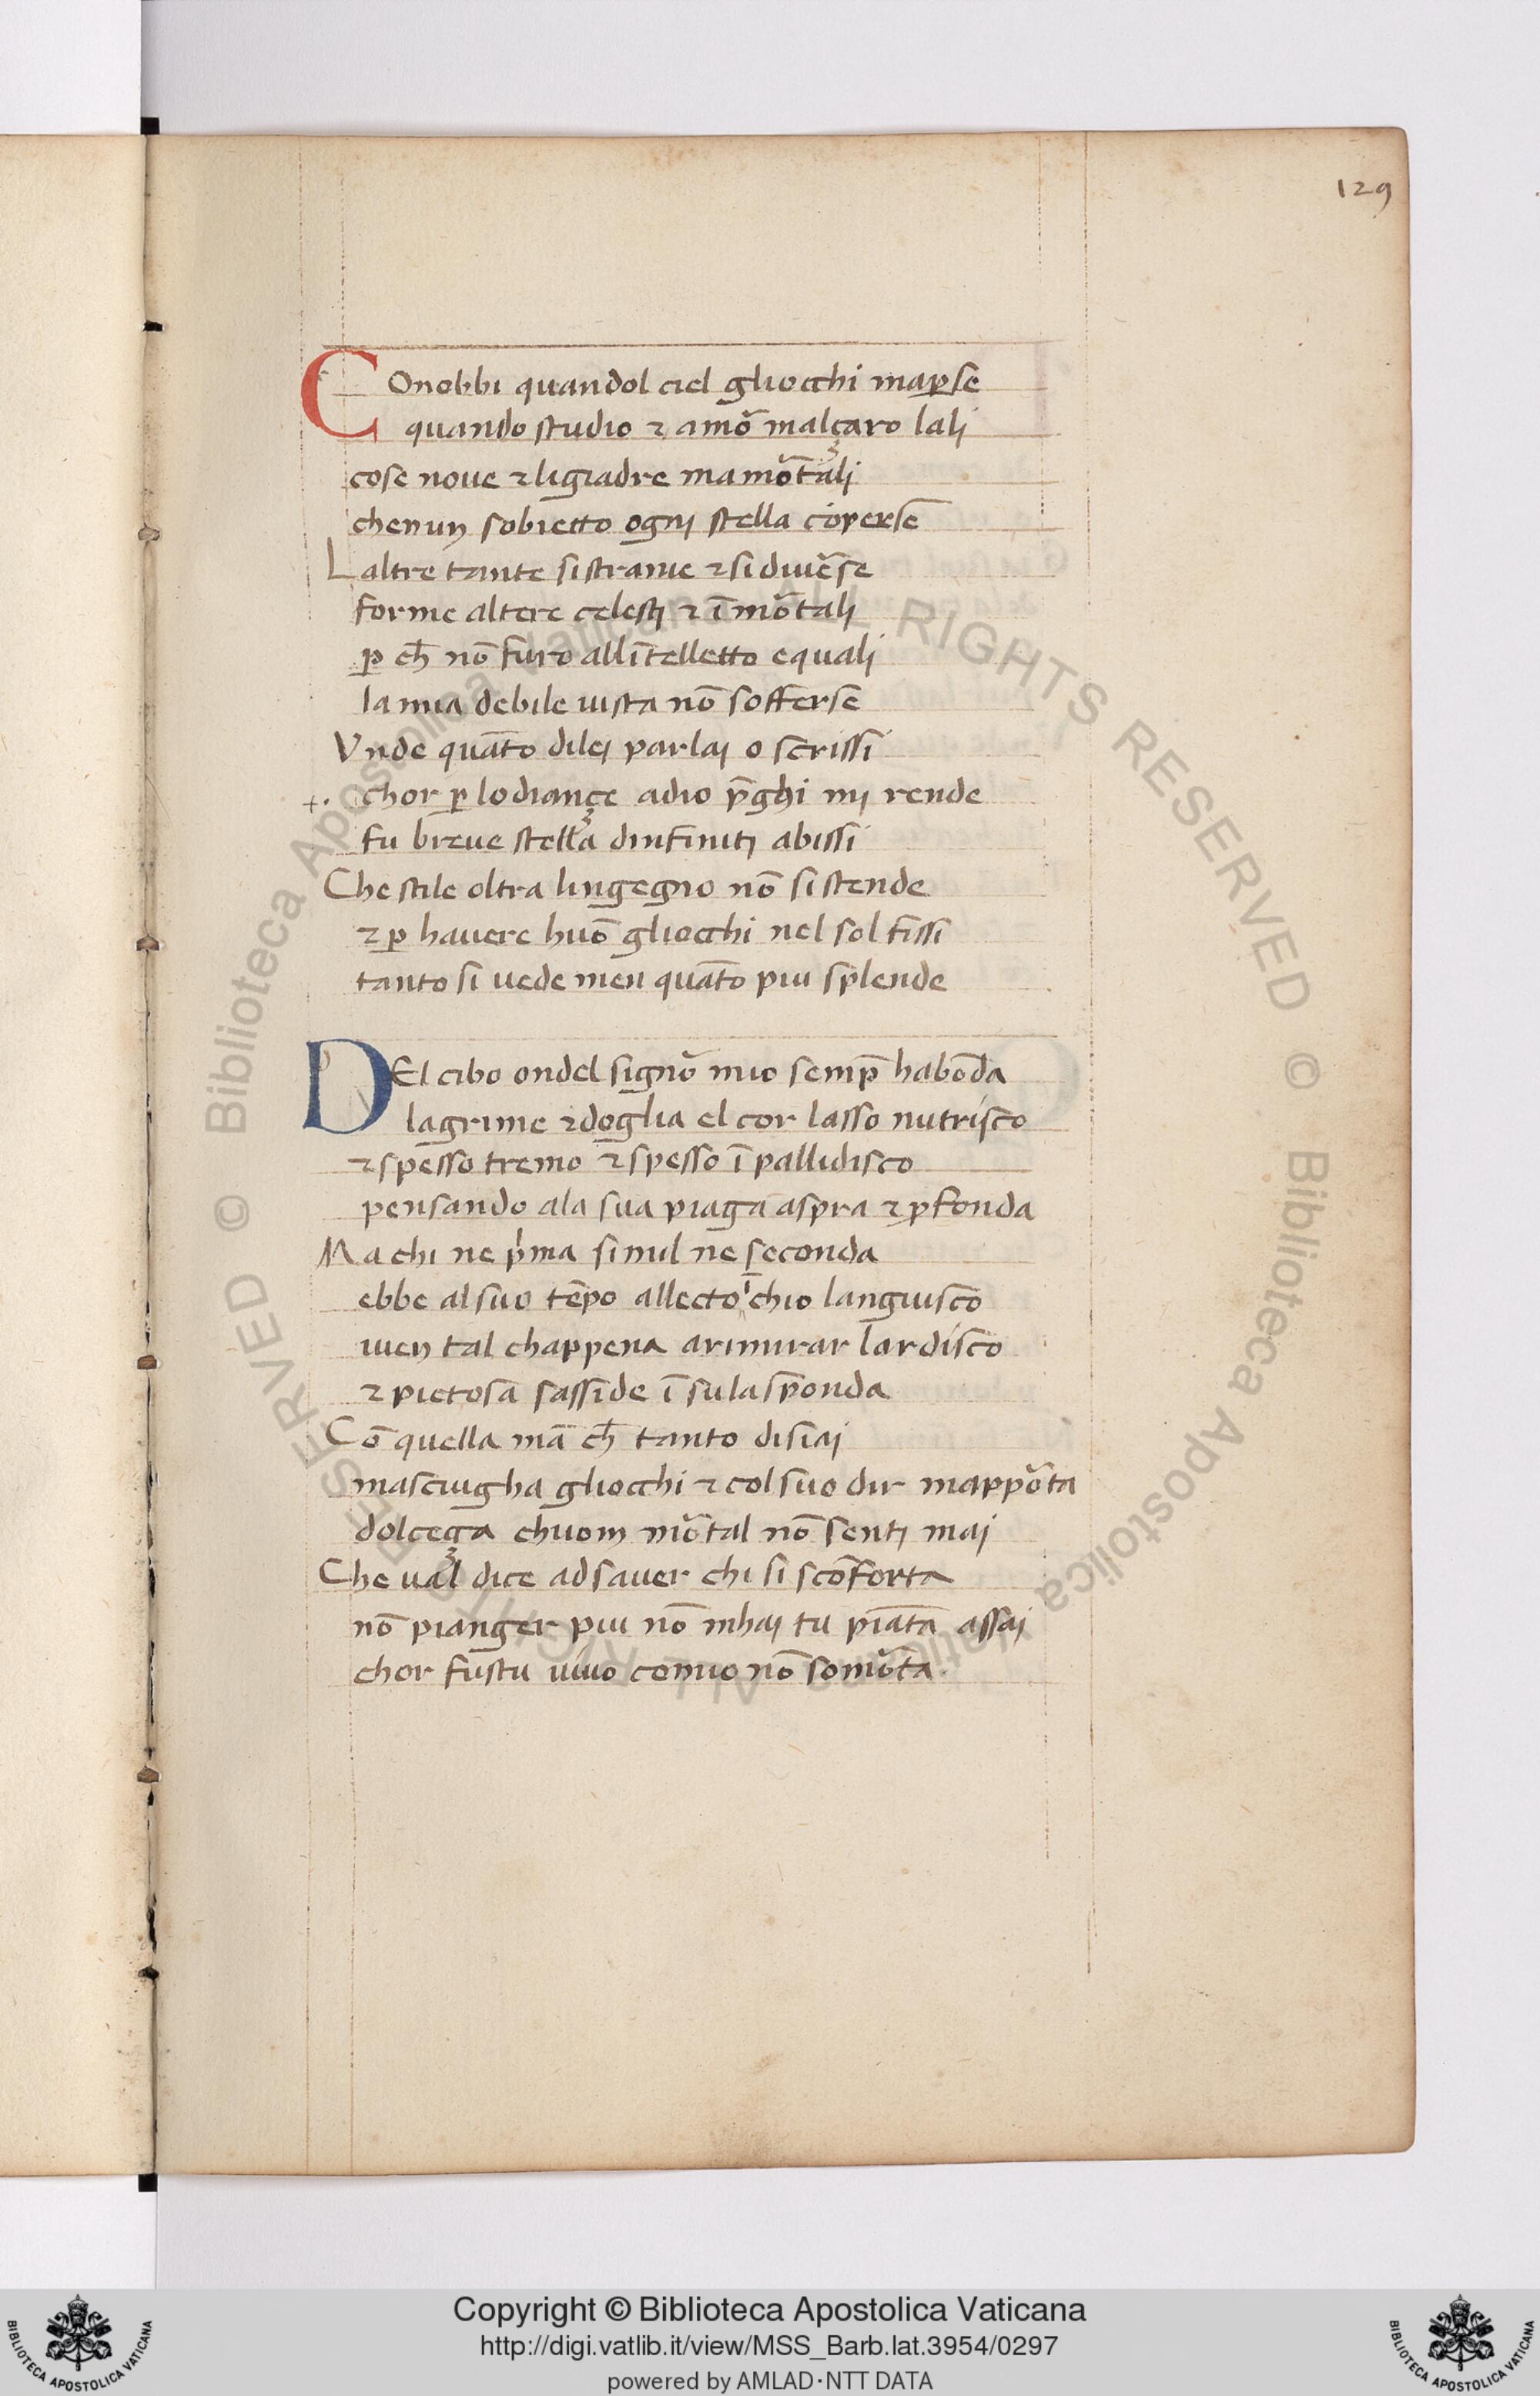 129
COnobbi quandol ciel gliocchi map̱se
quando studio ⁊ amõ malçaro lali
cose noue ⁊ ligiadre ma mõtali
chenun sobietto ogni stella cõperse
Laltre tante si stranie ⁊ si diuẽse
forme altere celesti ⁊ ĩmõtali
ꝑ ch̄ nõ furo allĩtelletto equali
la mia debile uista nõ sofferse
Vnde quãto dilei parlai o scrissi
+. chor ꝑ lodiançe adio p̄ghi mi rende
fu breue stilla dinfiniti abissi
Che stile oltra lingegno nõ si stende
⁊ ꝑ hauere huõ gliocchi nel sol fissi
tanto si uede men quãto piu splende
DEl cibo ondel signõ mio semp̄ habõda
lagrime ⁊ doglia el cor lasso nutrisco
⁊ spesso tremo ⁊ spesso ĩpallidisco
pensando ala sua piaga aspra ⁊ ꝓfonda
Ma chi ne p̍ma simil ne seconda
ebbe al suo tẽpo allecto ĩ chio languisco
uien tal chappena arimirar lardisco
⁊ pietosa sasside ĩ sulasponda
Cõ quella mã ch̄ tanto disiai
masciugha gliocchi ⁊ col suo dir mappõta
dolceça chuom mõtal nõ senti mai
Che ual dice ad sauer chi si scõforta
nõ pianger piu nõ mhai tu piãta assai
chor fustu uiuo comio nõ so mõta.
Copyright © Biblioteca Apostolica Vaticana
http://digi.vatlib.it/view/MSS_Barb.lat.3954/0297
powered by AMLAD·NTT DATA
BIBLIOTECA APOSTOLICA VATICANA
BIBLIOTECA APOSTOLICA VATICANA
© Biblioteca Apostolica Vaticana ALL RIGHTS RESERVED © Biblioteca Apostolica Vaticana ALL RIGHTS RESERVED